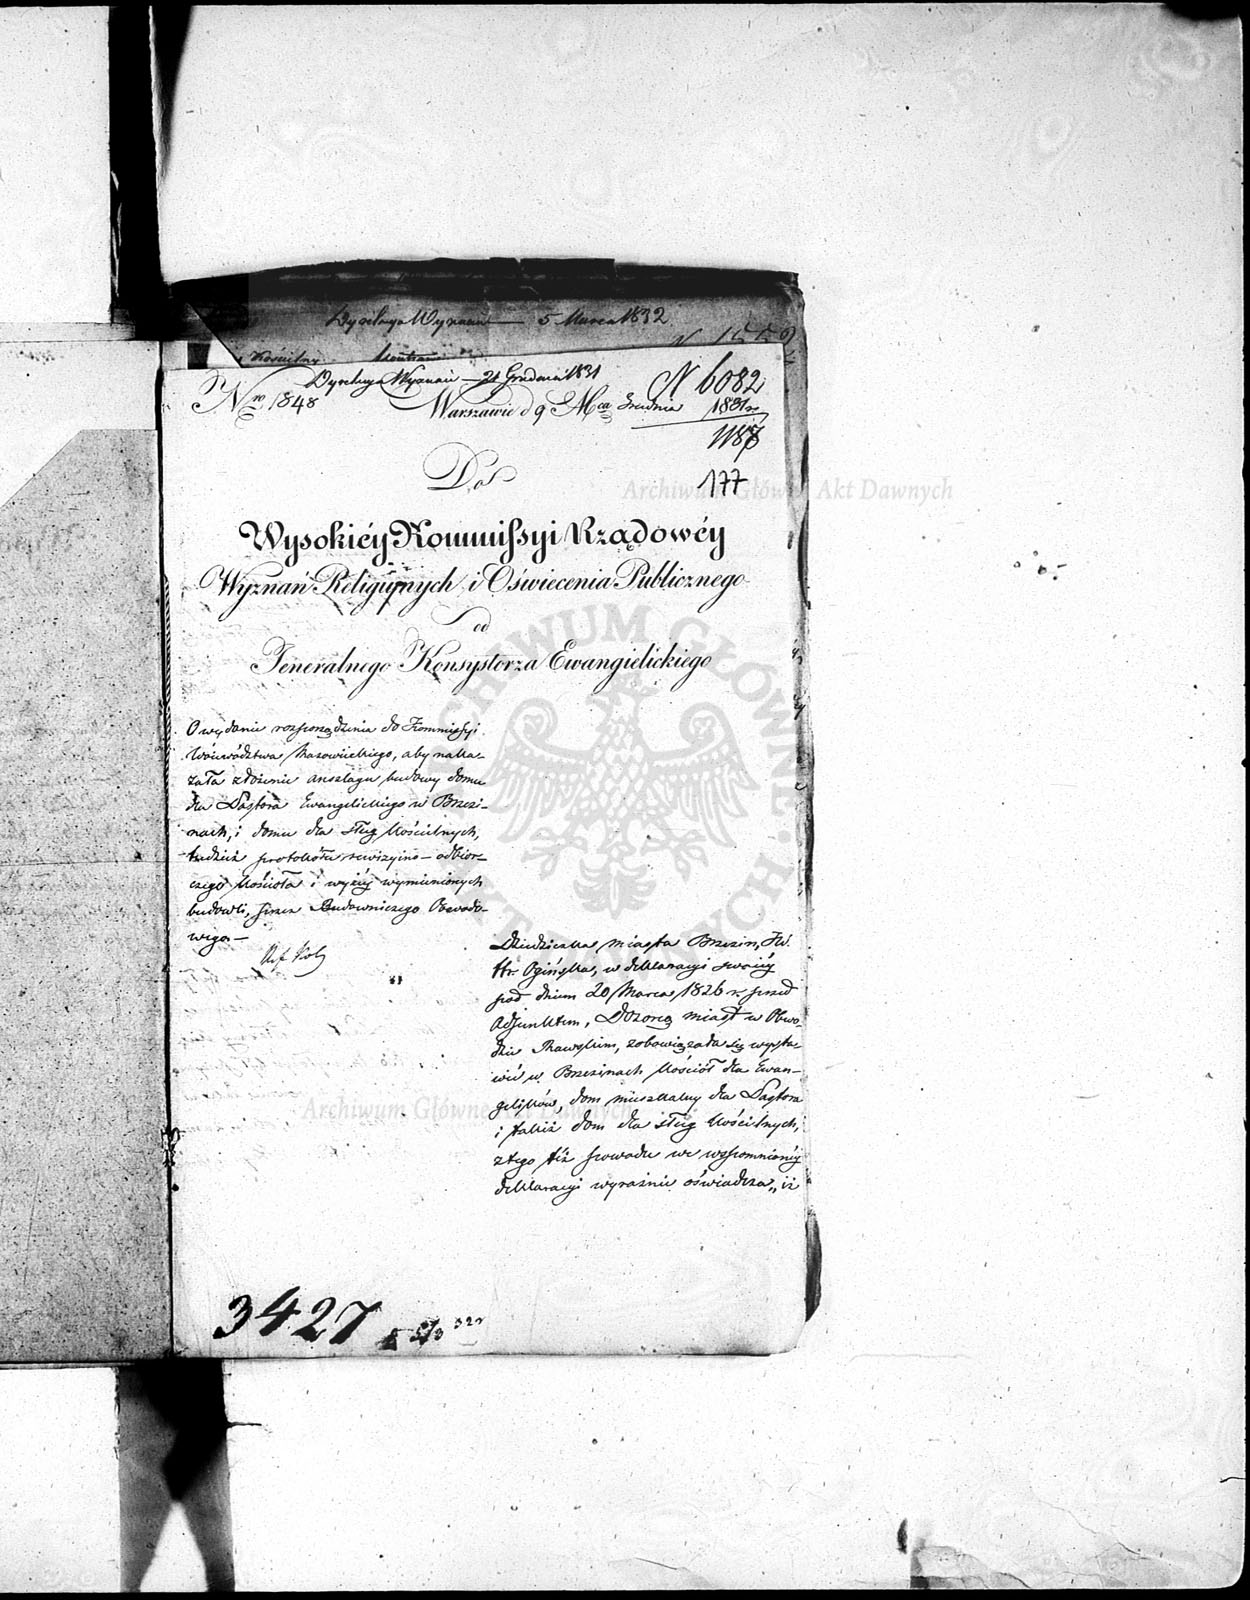 Dyrekcya Wyznań — 5 Marca 1832
Kościelny
Dyrekcya Wyznań — 21 Grudnia 1831
N 6082
1831 r
Nro 1848
Warszawie d 9 Mca Grudnia
1187
177
Do
Wysokiéy Kommissyi Rządowéy
Wyznań Religiynych i Oświecenia Publicznego
od
Jeneralnego Konsystorza Ewangielickiego
O wydanie rozporządzenia do Kommissyi
Woiewództwa Mazowieckiego, aby naka-
zała złożenie anszlagu budowy domu
dla Pastora Ewangelickiego w Brzezi-
nach, i domu dla sług kościelnych,
tudzież protokółu rewizyino-odbior-
czego kościoła i wyżéy wymienionych
budowli, przez Budowniczego Obwodo-
wego —
Dziedziczka miasta Brzezin, JW.
Hr. Ogińska, w deklaracyi swoiéy
pod dniem 20 Marca 1826 r. przed
Adjunktem, Dozorcą miast w Obwo-
dzie Rawskim, zobowiązała się wysta-
wić w Brzezinach kościół dla Ewan-
gelików, dom mieszkalny dla Pastora
i takiż dom dla sług kościelnych,
z tego też powodu we wspomnionéy
deklaracyi wyraźnie oświadcza „iż
3427
Archiwum Główne Akt Dawnych
ARCHIWUM GŁÓWNE AKT DAWNYCH
Archiwum Główne Akt Dawnych